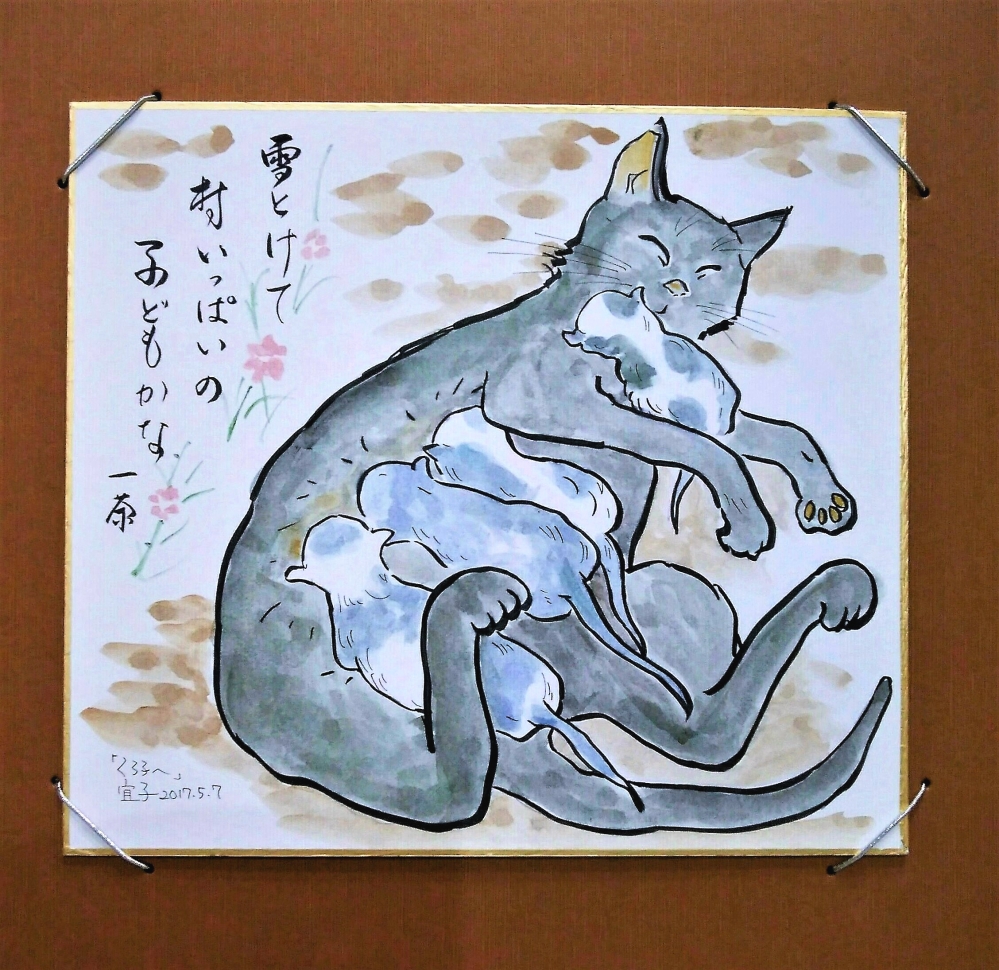 雪とけて
村いっぱいの
子どもかな
一茶
「くろ子へ」
宜子 2017.5.7